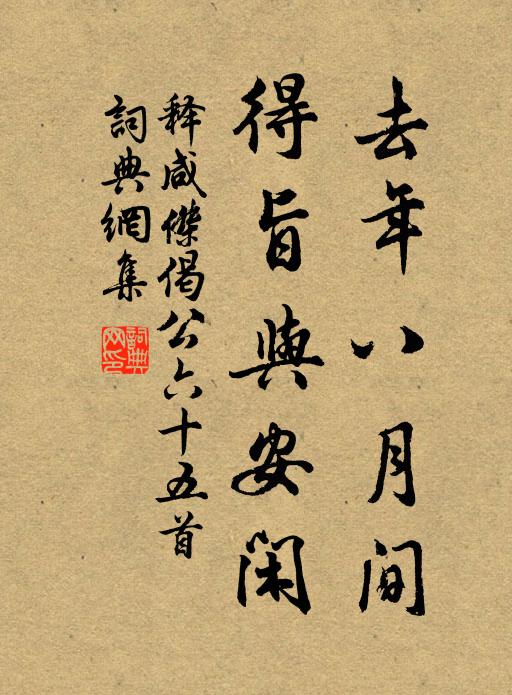 去年八月間
得旨與安閑
释咸傑偈公六十五首
詞典網集
詞典網印